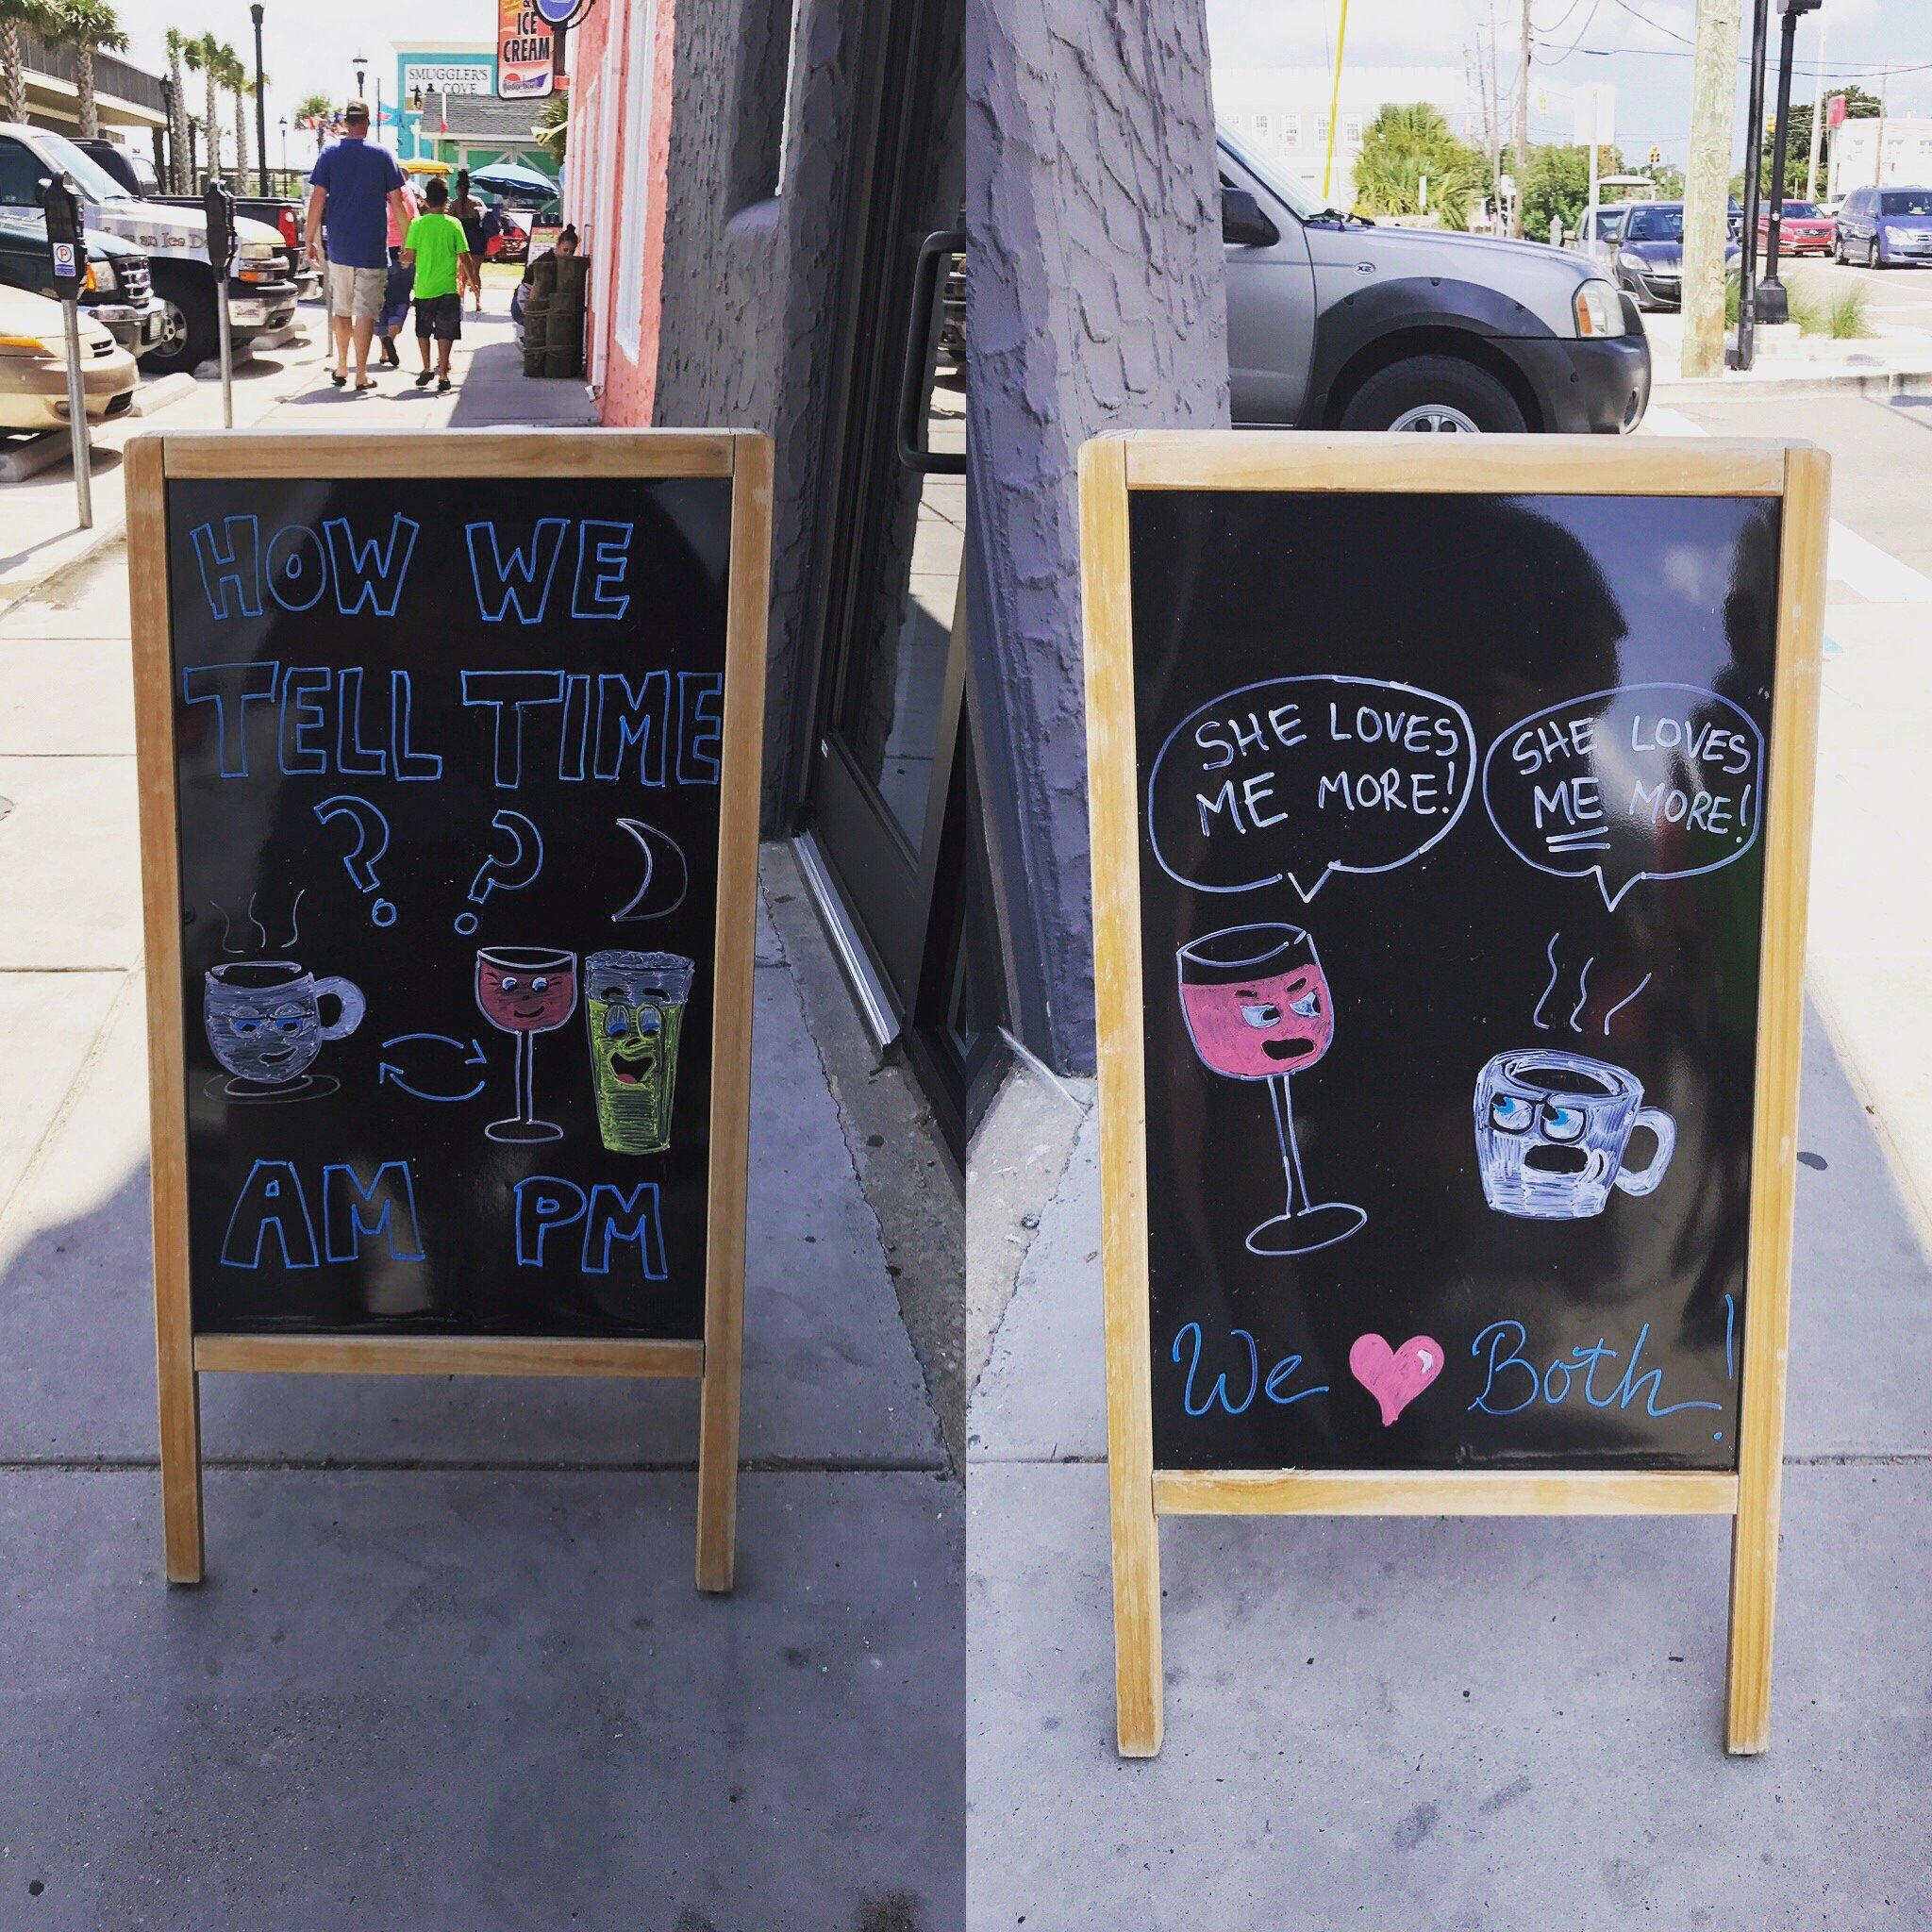 & 
ICE
CREAM
SMUGGLER'S
COVE
HOW WE
TELL TIME
? ?
AM PM
XE
SHE LOVES
ME MORE!
SHE LOVES
ME MORE!
We ♥ Both!